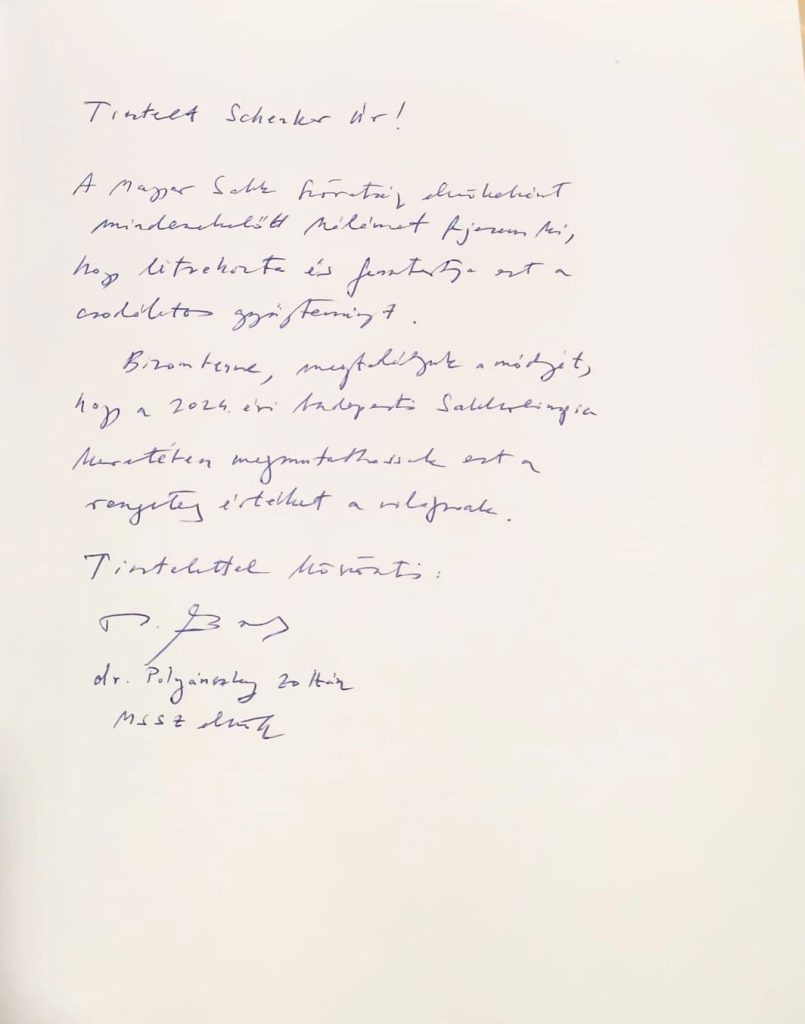 Tisztelt Schenker Úr!
A Magyar Sakk Szövetség elnökeként
mindenekelőtt hálámat fejezem ki,
hogy létrehozta és fenntartja ezt a
csodálatos gyűjteményt.
Bízom benne, megtaláljuk a módját,
hogy a 2024. évi budapesti Sakkolimpia
keretében megmutathassuk ezt a
rengeteg értéket a világnak.
Tisztelettel köszönti:
dr. Polyánszky Zoltán
MSSZ elnök